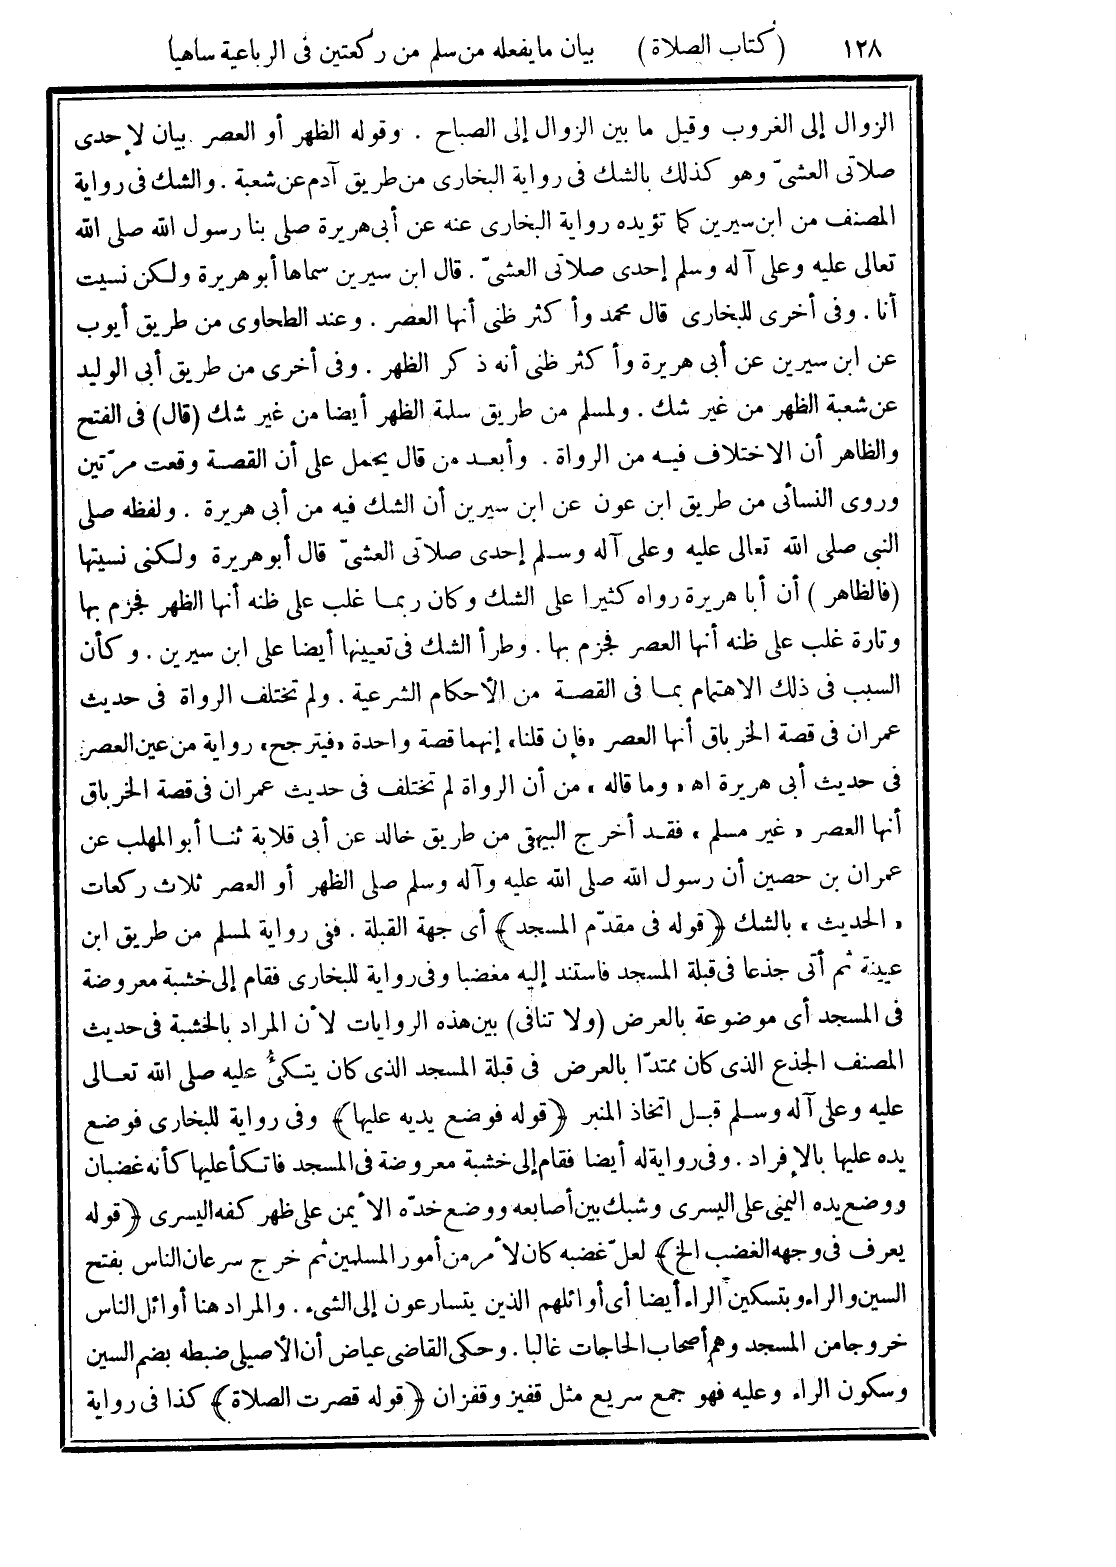 ١٢٨ (كتاب الصلاة) بيان ما يفعله من سلم من ركعتين فى الرباعية ساهيا
الزوال إلى الغروب وقيل ما بين الزوال إلى الصباح . وقوله الظهر أو العصر بيان لإحدى
صلاتى العشىّ وهو كذلك بالشك فى رواية البخارى من طريق آدم عن شعبة . والشك فى رواية
المصنف من ابن سيرين كما تؤيده رواية البخارى عنه عن أبى هريرة صلى بنا رسول الله صلى الله
تعالى عليه وعلى آله وسلم إحدى صلاتى العشىّ . قال ابن سيرين سماها أبو هريرة ولكن نسيت
أنا . وفى أخرى للبخارى قال محمد وأكثر ظنى أنها العصر . وعند الطحاوى من طريق أيوب
عن ابن سيرين عن أبى هريرة وأكثر ظنى أنه ذكر الظهر . وفى أخرى من طريق أبى الوليد
عن شعبة الظهر من غير شك . ولمسلم من طريق سلمة الظهر أيضا من غير شك (قال) فى الفتح
والظاهر أن الاختلاف فيه من الرواة . وأبعد من قال يحمل على أن القصة وقعت مرّتين
وروى النسائى من طريق ابن عون عن ابن سيرين أن الشك فيه من أبى هريرة . ولفظه صلى
النبى صلى الله تعالى عليه وعلى آله وسلم إحدى صلاتى العشىّ قال أبو هريرة ولكنى نسيتها
(فالظاهر) أن أبا هريرة رواه كثيرا على الشك وكان ربما غلب على ظنه أنها الظهر فجزم بها
وتارة غلب على ظنه أنها العصر فجزم بها . وطرأ الشك فى تعيينها أيضا على ابن سيرين . وكأن
السبب فى ذلك الاهتمام بما فى القصة من الأحكام الشرعية . ولم تختلف الرواة فى حديث
عمران فى قصة الخرباق أنها العصر «فإن قلنا» إنهما قصة واحدة «فيترجح» رواية من عين العصر
فى حديث أبى هريرة اه «وما قاله» من أن الرواة لم تختلف فى حديث عمران فى قصة الخرباق
أنها العصر «غير مسلم» فقد أخرج البيهقى من طريق خالد عن أبى قلابة ثنا أبو المهلب عن
عمران بن حصين أن رسول الله صلى الله عليه وآله وسلم صلى الظهر أو العصر ثلاث ركعات
«الحديث» بالشك ﴿قوله فى مقدّم المسجد﴾ أى جهة القبلة . ففى رواية لمسلم من طريق ابن
عيينة ثم أتى جذعا فى قبلة المسجد فاستند إليه مغضبا وفى رواية للبخارى فقام إلى خشبة معروضة
فى المسجد أى موضوعة بالعرض (ولا تنافى) بين هذه الروايات لأن المراد بالخشبة فى حديث
المصنف الجذع الذى كان ممتدّا بالعرض فى قبلة المسجد الذى كان يتكئُ عليه صلى الله تعالى
عليه وعلى آله وسلم قبل اتخاذ المنبر ﴿قوله فوضع يديه عليها﴾ وفى رواية للبخارى فوضع
يده عليها بالإفراد . وفى رواية له أيضا فقام إلى خشبة معروضة فى المسجد فاتكأ عليها كأنه غضبان
ووضع يده اليمنى على اليسرى وشبك بين أصابعه ووضع خدّه الأيمن على ظهر كفه اليسرى ﴿قوله
يعرف فى وجهه الغضب الخ﴾ لعلّ غضبه كان لأمر من أمور المسلمين ثم خرج سرعان الناس بفتح
السين والراء وبتسكين الراء أيضا أى أوائلهم الذين يتسارعون إلى الشىء . والمراد هنا أوائل الناس
خروجا من المسجد وهم أصحاب الحاجات غالبا . وحكى القاضى عياض أن الأصيلى ضبطه بضم السين
وسكون الراء وعليه فهو جمع سريع مثل قفيز وقفزان ﴿قوله قصرت الصلاة﴾ كذا فى رواية